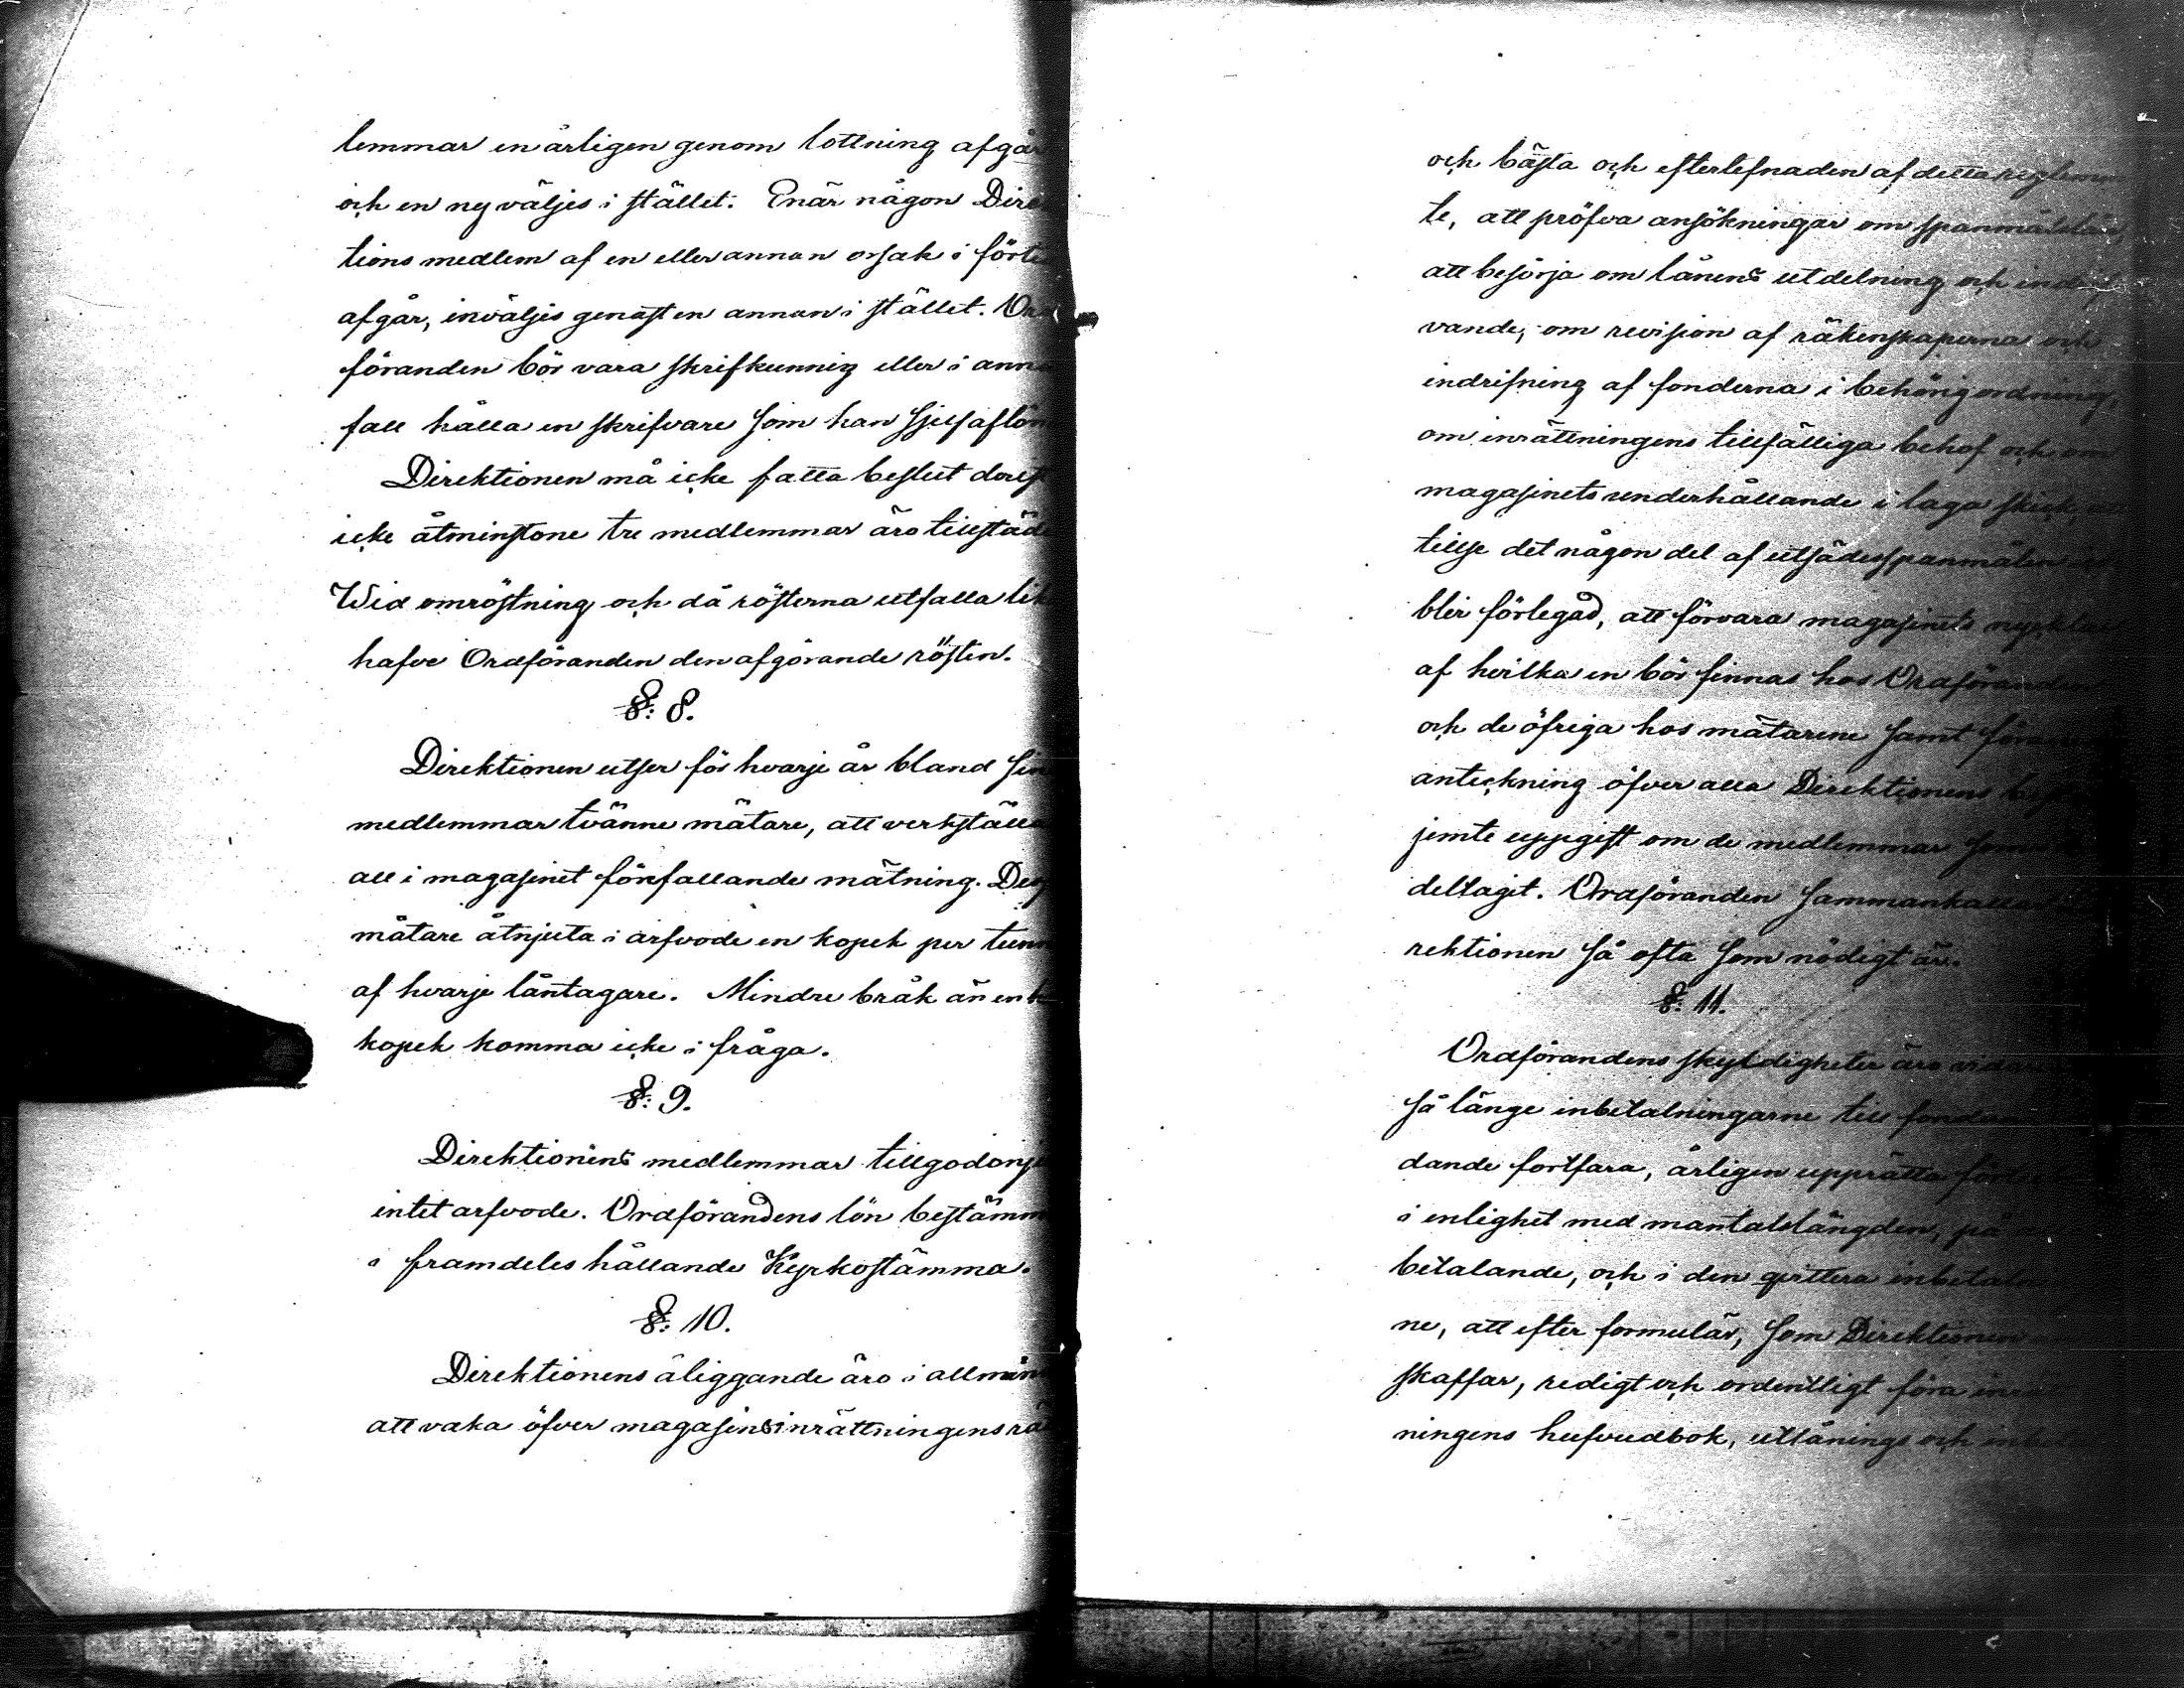 lemmar en årligen genom lottning afgår
och en ny väljes i stället. Enär någon Direk
tions medlem af en eller annan orsak i förti
afgår, inväljes genast en annan i stället. Ord
föranden bör vara skrifkunnig eller i anna
fall hålla en skrifvare som han sjelf aflön
Direktionen må icke fatta beslut derest
icke åtminstone tre medlemmar äro tillstäd
Wid omröstning och då rösterna utfalla lik
hafve Ordföranden den afgörande rösten.
§: 8.
Direktionen utser för hvarje år bland sin
medlemmar tvänne mätare, att verkställa
all i magasinet förefallande mätning. Des
mätare åtnjuta i arfvode en kopek per tunn
af hvarje låntagare. Mindre bråk än en
kopek komma icke i fråga.
§: 9.
Direktionens medlemmar tillgodonj
intet arfvode. Ordförandens lön bestämm
i framdeles hållande Kyrkostämma.
§: 10.
Direktionens åliggande äro i allmän
att vaka öfver magasinsinrättningens rä
och bästa och efterlefnaden af detta reglemen
te, att pröfva ansökningar om spanmålslån,
att besörja om lånens utdelning och indrif
vande, om revision af räkenskaperna och
indrifning af fonderna i behörig ordning,
om inrättningens tillfälliga behof och om
magasinets underhållande i laga skick, att
tillse det någon del af utsädesspanmålen
blir förlegad, att förvara magasinets nycklar
af hvilka en bör finnas hos Ordföranden
och de öfriga hos mätarene samt föra
anteckning öfver alla Direktionens
jemte uppgift om de medlemmar som
deltagit. Ordföranden sammankallar
rektionen så ofta som nödigt är.
§: 11.
Ordförandens skyldigheter äro vidare
så länge inbetalningarne till fonden
dande fortfara, årligen upprätta
i enlighet med mantalslängden, på
betalande, och i den qvittera inbetal
ne, att efter formulär, som Direktionen
skaffar, redigt och ordentligt föra inrätt
ningens hufvudbok, utlånings och